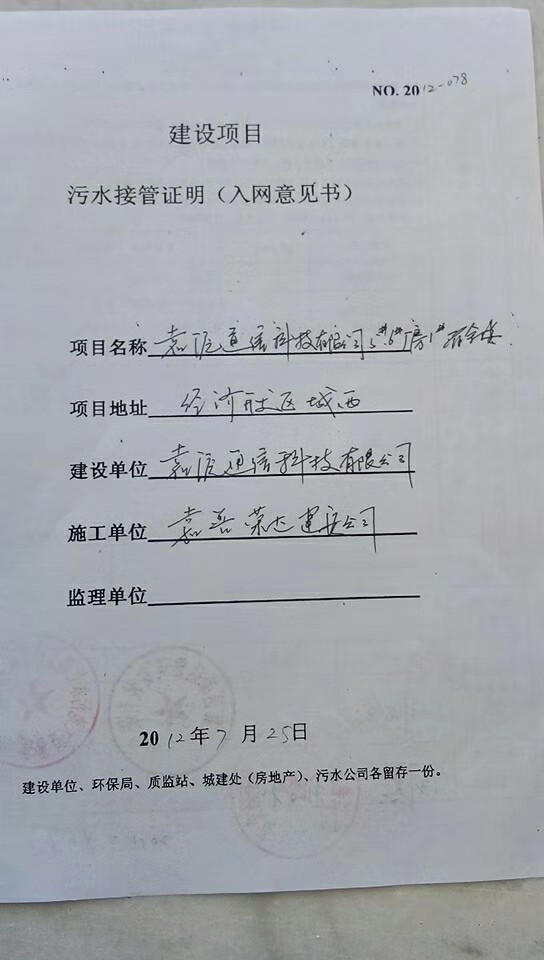 NO. 2012-078
建设项目
污水接管证明（入网意见书）
项目名称 嘉汇通信科技有限公司5#6#厂房1#宿舍楼
项目地址 经济开发区城西
建设单位 嘉汇通信科技有限公司
施工单位 嘉善荣达建安公司
监理单位
2012年7月25日
建设单位、环保局、质监站、城建处（房地产）、污水公司各留存一份。